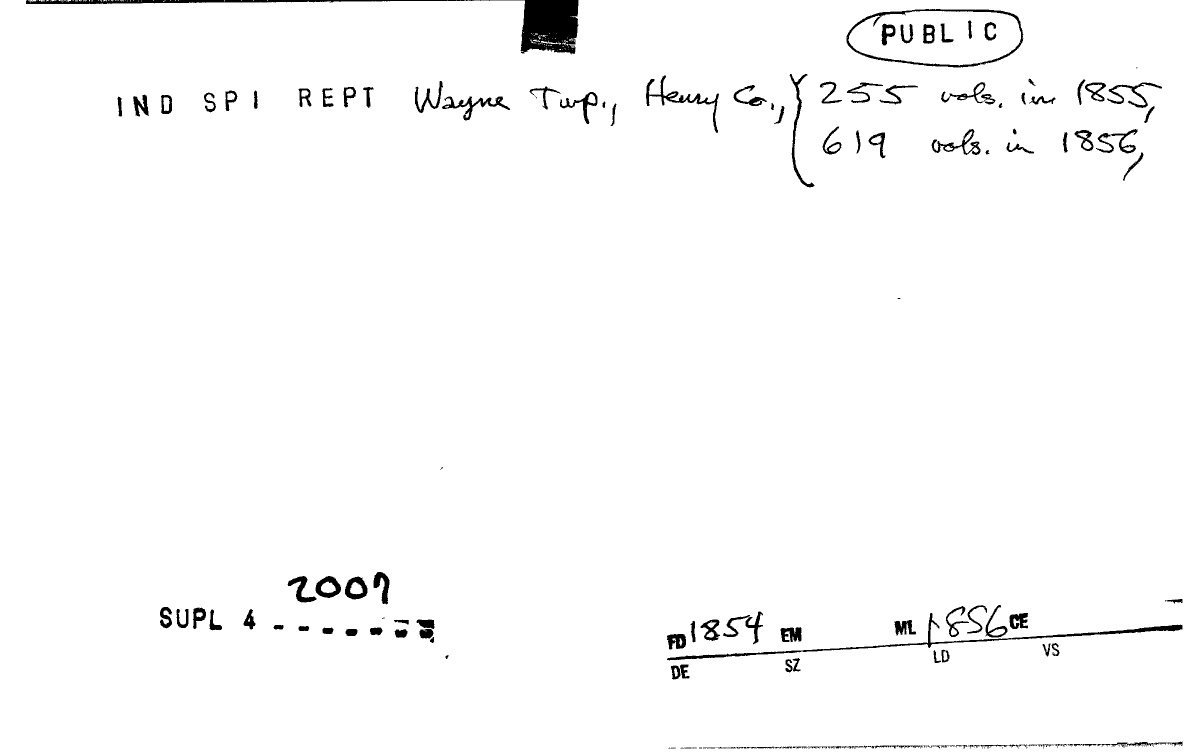 PUBLIC
IND SPI REPT Wayne Twp., Henry Co., { 255 vols. in 1855,
619 vols. in 1856,
2007
SUPL 4 - - - - - - -
FD 1854 EM ML 1856 CE
DE SZ LD VS